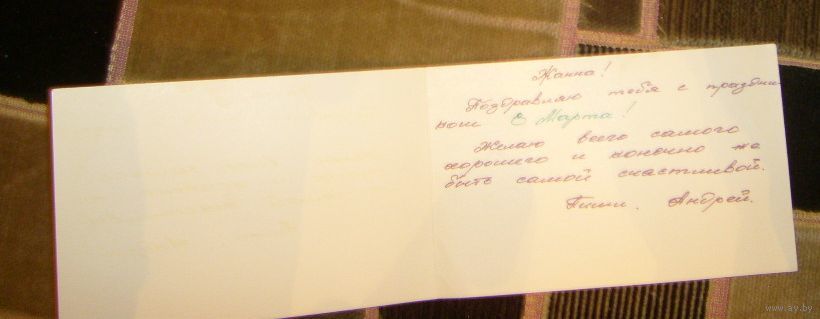 Жанна!
Поздравляю тебя с праздни-
ком 8 Марта!
Желаю всего самого
хорошего и конечно же
быть самой счастливой.
Андрей.
www.ay.by